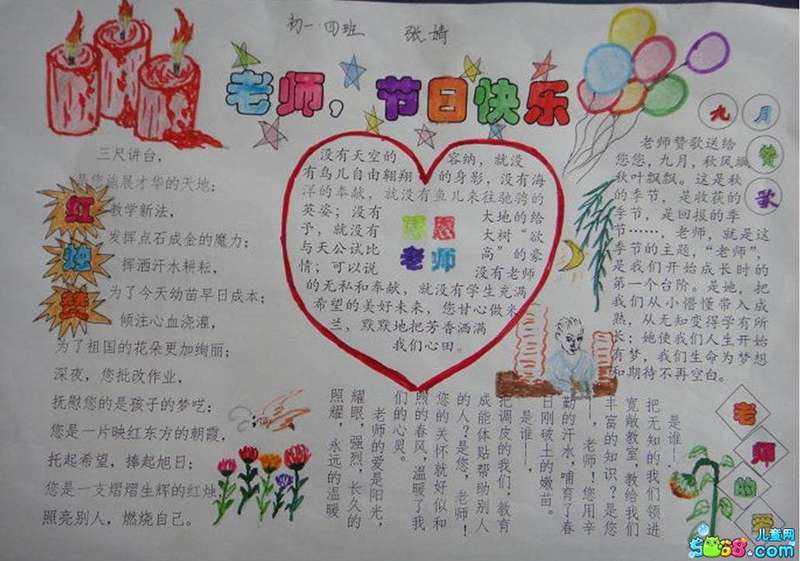 初一·四班 张婧
老师，节日快乐
红烛赞
三尺讲台，
是您施展才华的天地；
教学新法，
发挥点石成金的魔力；
挥洒汗水耕耘，
为了今天幼苗早日成本；
倾注心血浇灌，
为了祖国的花朵更加绚丽；
深夜，您批改作业，
抚慰您的是孩子的梦呓；
您是一片映红东方的朝霞，
托起希望，捧起旭日；
您是一支熠熠生辉的红烛，
照亮别人，燃烧自己。
感恩
老师
没有天空的 容纳，就没
有鸟儿自由翱翔 的身影，没有海
洋的奉献，就没有鱼儿来往驰骋的
英姿；没有 大地的给
予，就没有 大树“欲
与天公试比 高”的豪
情；可以说 没有老师
的无私和奉献，就没有学生充满
希望的美好未来，您甘心做米
兰，默默地把芳香洒满
我们心田。
九月赞歌
老师赞歌送给
您您，九月，秋风飒
秋叶飘飘。这是秋
的季节，是收获的
季节，是回报的季
节……，老师，就是这
季节的主题，“老师”，
是我们开始成长时的
第一个台阶。是她，把
我们从小懵懂带入成
熟，从无知变得学有所
长；她使我们人生开始
有梦，我们生命为梦想
和期待不再空白。
老师的爱
是谁—，
把无知的我们领进
宽敞教室，教给我们
丰富的知识？是您
—，老师！您用辛
勤的汗水，哺育了春
日刚破土的嫩苗。
是谁—，
把调皮的我们，教育
成能体贴帮助别人
的人？是您，老师！
您的关怀就好似和
煦的春风，温暖了我
们的心灵。
老师的爱是阳光，
耀眼，强烈，长久的
照耀，永远的温暖
儿童网
9068.com